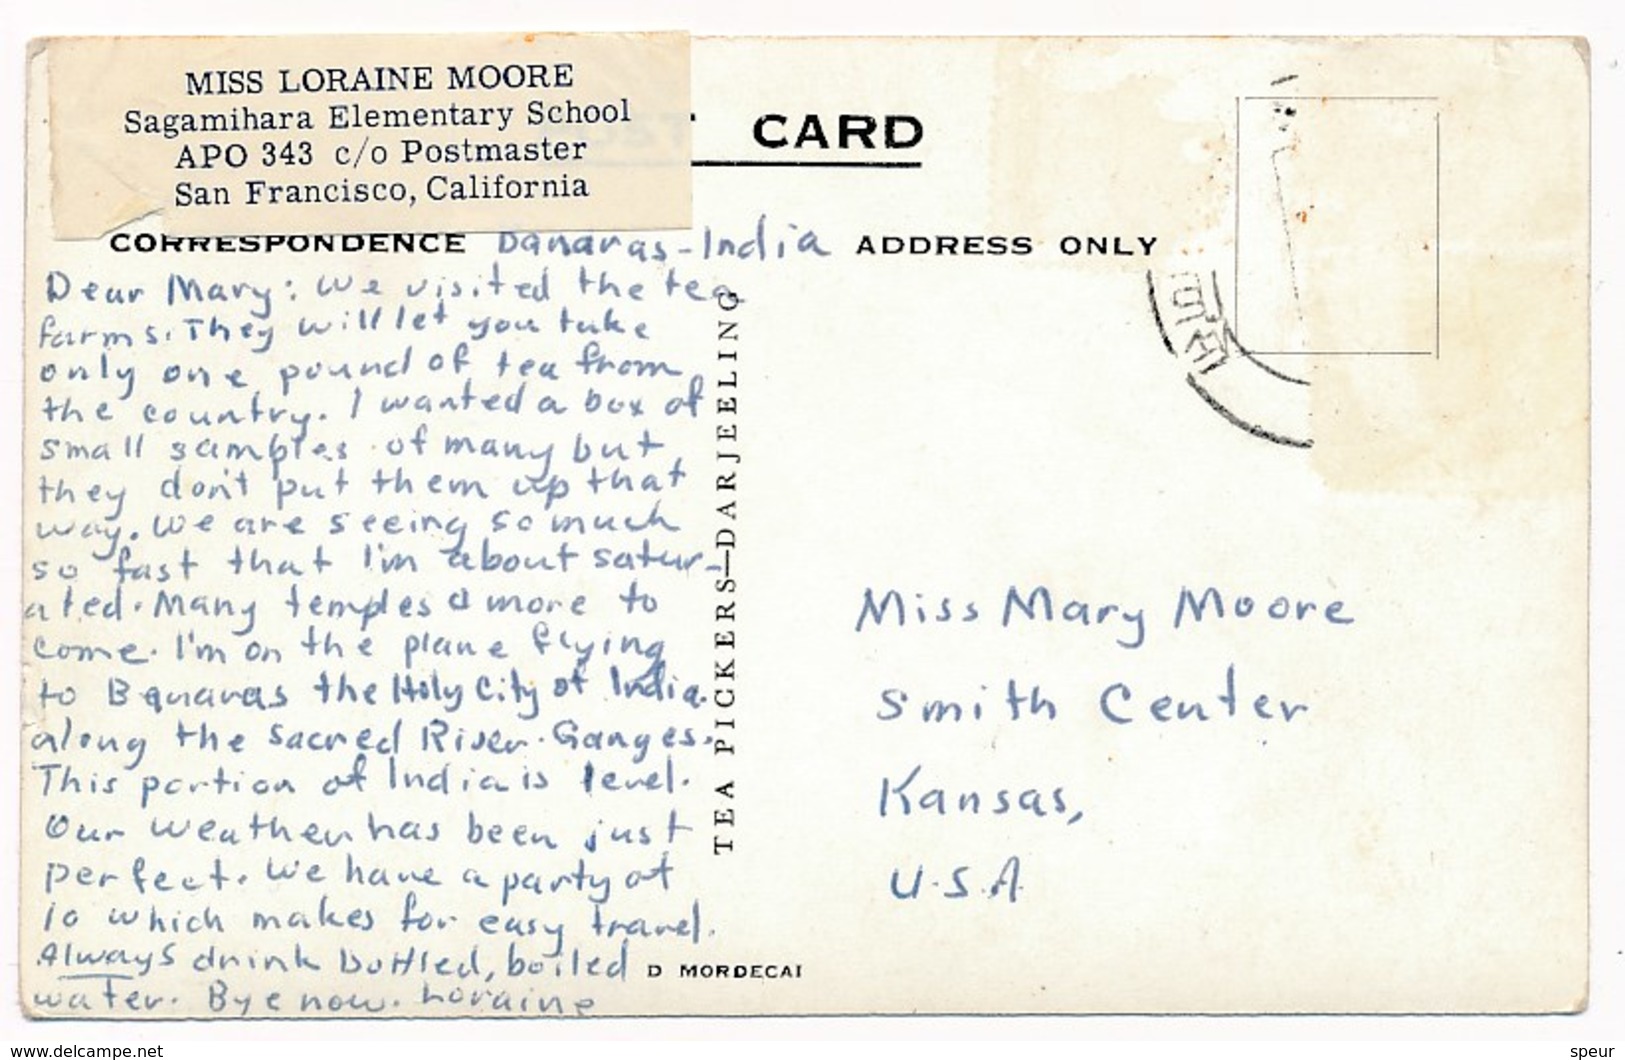 MISS LORAINE MOORE
Sagamihara Elementary School
APO 343 c/o Postmaster
San Francisco, California
CARD
CORRESPONDENCE
Banaras - India
ADDRESS ONLY
Dear Mary: We visited the tea
farms. They will let you take
only one pound of tea from
the country. I wanted a box of
small samples of many but
they don't put them up that
way. We are seeing so much
so fast that I'm about satur-
ated. Many temples & more to
come. I'm on the plane flying
to Banaras the Holy City of India.
along the Sacred River. Ganges.
This portion of India is level.
Our weather has been just
perfect. We have a party of
10 which makes for easy travel.
Always drink bottled, boiled
water. Bye now. Loraine
TEA PICKERS—DARJEELING
D MORDECAI
Miss Mary Moore
Smith Center
Kansas,
U.S.A.
delcampe.net
speur